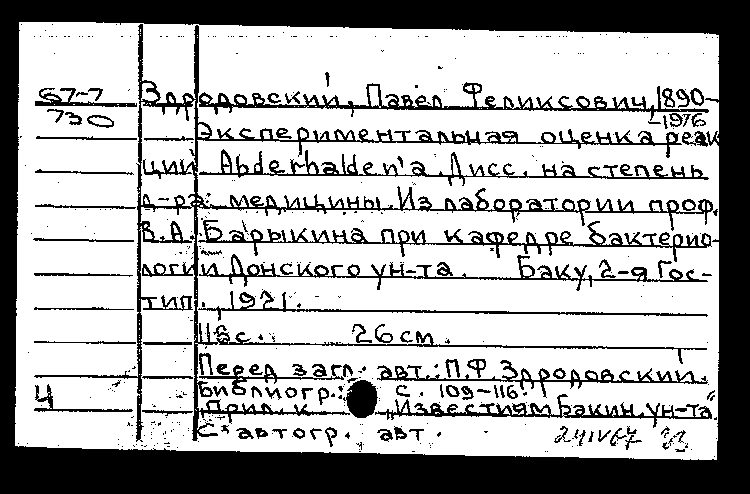 67-7 Здродовский, Павел Феликсович, 1890-
730 -1976
Экспериментальная оценка реак
ций Abderhalden'а. Дисс. на степень
д-ра: медицины. Из лаборатории проф.
В.А. Барыкина при кафедре бактерио-
логии Донского ун-та. Баку, 2-я Гос-
тип., 1921.
116с. 26см.
Перед загл. авт.: П.Ф. Здродовский.
Библиогр.: с. 109-116.
Ч Прил. к „Известиям Бакин. ун-та"
С автогр. авт. 24IV67